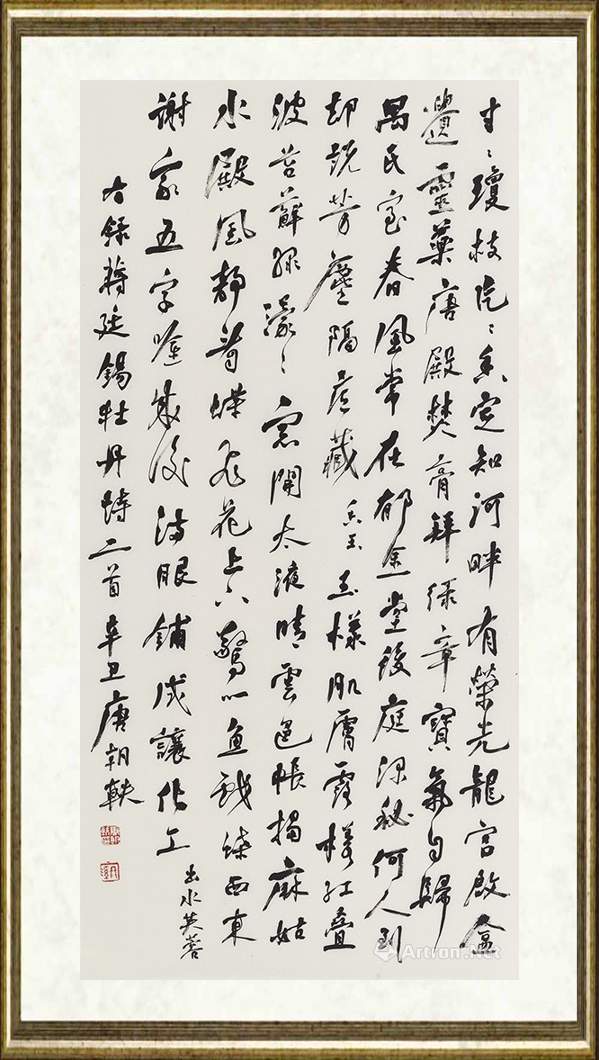 寸〻瓊枝〻香定知河畔有榮光龍宮啟盒
遺靈藥唐殿焚膏拜綠章寶氣自歸
禺氏室春風常在郁金堂後庭深秘何人到
却説芳塵隔座藏 香玉 玉樣肌膚霞樣紅疊
波苔蘚綠濛〻宮開太液晴雲邑帳揭麻姑
水殿風靜看蝶飛花上下驚魚戲葉西東
謝家五字吟成後滿眼鋪成讓化工 出水芙蓉
右録蔣廷錫牡丹詩二首辛丑唐朝軼
Artron.Net